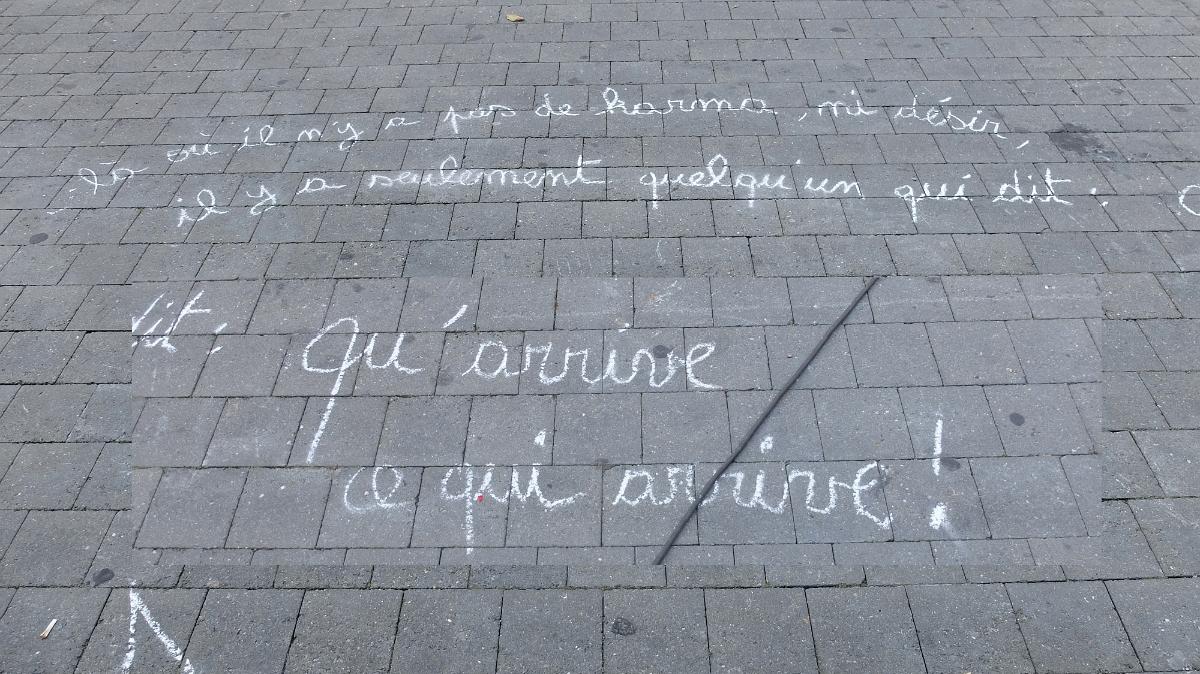 Là où il n'y a pas de karma, ni désir,
il y a seulement quelqu'un qui dit :
dit : Qu'arrive
ce qui arrive !